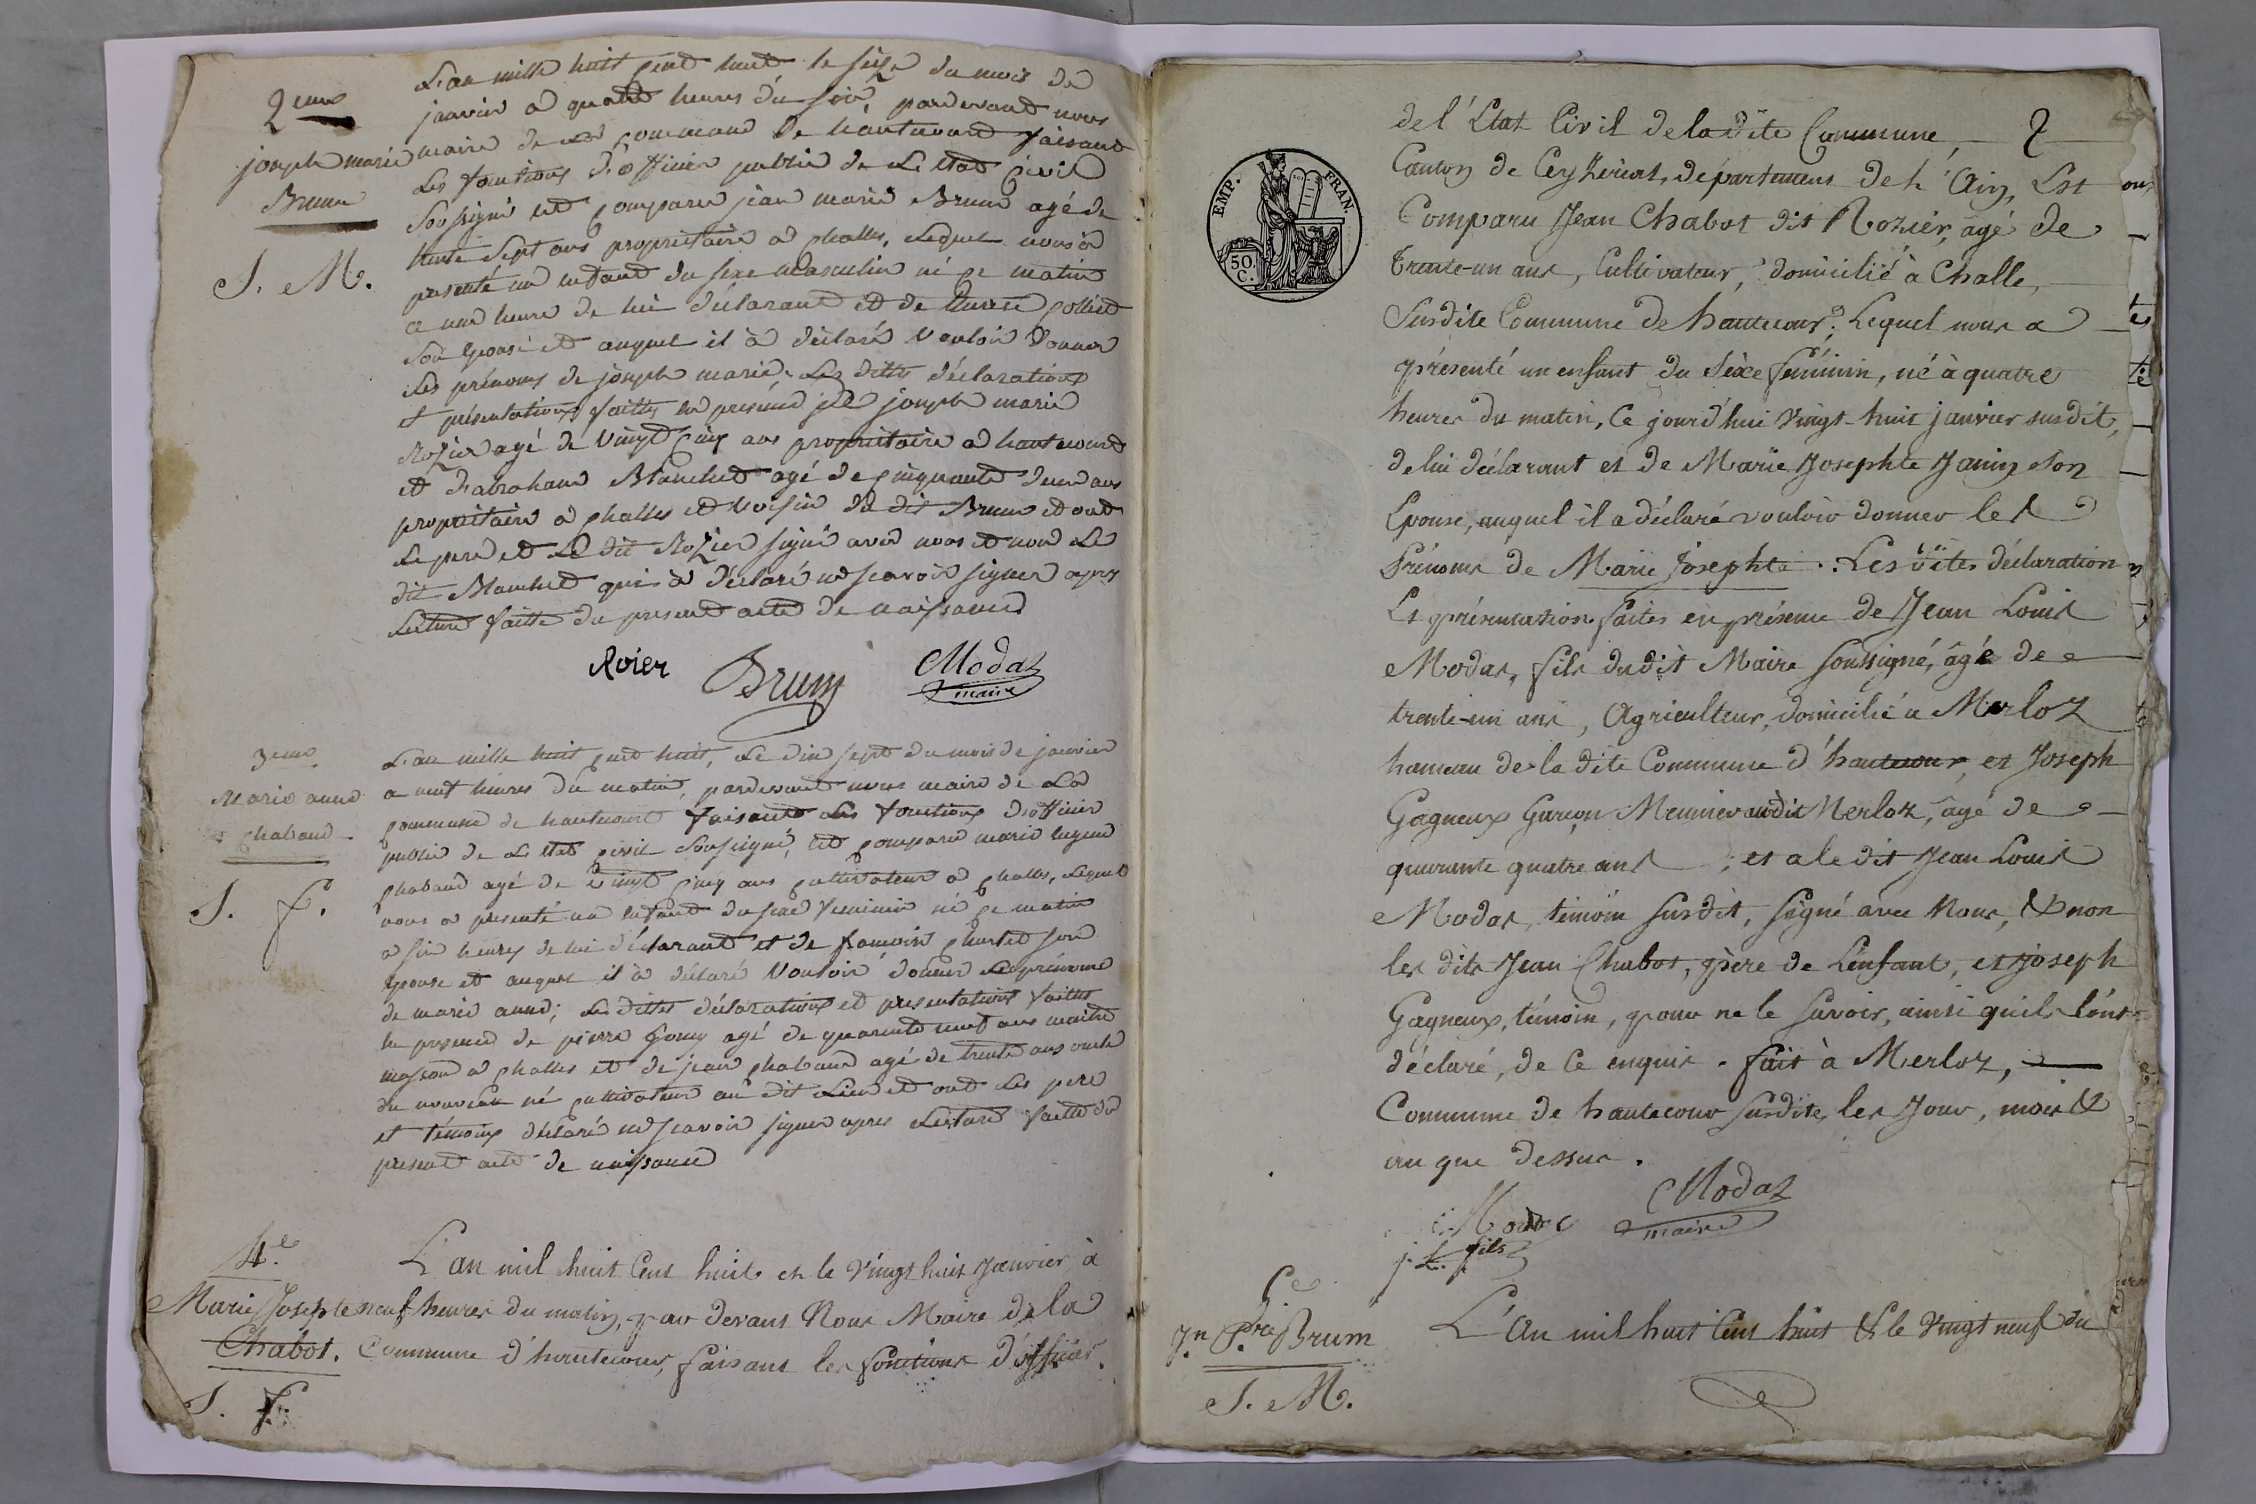 2eme
joseph marie
Brunn
S. M.
L'an mille huit cent huit le seize du mois de
janvier a quatre heures du soir, pardevant nous
maire de la commune de hautecourt faisant
les fonctions d'officier public de L'etat civil
soussigné est comparu jean marie Brun agé de
trente sept ans propriétaire a challes, lequel nous a
presenté un enfant du sexe masculin né ce matin
a une heure de lui déclarant et de
son epouse et auquel il à déclaré vouloir donner
les prénoms de joseph marie. Les dittes déclarations
et présentations faittes en presence de joseph marie
Rozier agé de vingt cinq ans propriétaire a hautecourt
et d'abraham Blanchet agé de cinquante deux ans
propriétaire a challes et voisin du dit Brun et ont
Le pere et Le dit Rozier signé avec nous et non Le
dit Blanchet qui à déclaré ne scavoir signer apres
Lecture faitte du present acte de naissance
Roier Brun Modas
maire
3eme
Marie anne
chaband
S. f.
L'an mille huit cent huit, Le dix sept du mois de janvier
a neuf heures du matin, pardevant nous maire de La
commune de hautecourt faisant Les fonctions d'officier
public de L'etat civil soussigné, est comparu marie
chaband agé de vingt cinq ans cultivateur a challes, Lequel
nous a presenté un enfant du sexe feminin né ce matin
a six heures de lui déclarant et de son
epouse et auquel il à déclaré vouloir donner Le prénome
de marie anne; Les dittes déclarations et presentations faittes
en presence de pierre agé de quarante neuf ans maitre
masson a challes et de jean chaband agé de trente ans oncle
du nouveau né cultivateur au dit Lieu et ont Les pere
et témoins déclaré ne scavoir signer apres Lecture faitte du
present acte de naissance
4.e
Marie Josephte
Chabot.
S. f.
L'an mil huit Cent huit et le vingt huit Janvier, à
neuf heures du matin, par devant Nous Maire de la
Commune d'hautecour, faisant les fonctions d'officier
EMP. FRAN.
50 C.
de l'Etat Civil de la dite Commune, 2
Canton de Ceyzeriat, département de l'Ain, Est
Comparu Jean Chabot dit Rozier, âgé de
Trente-un ans, Cultivateur, domicilié à Challe,
Susdite Commune de hautecour. Lequel nous a
présenté un enfant du Sèxe féminin, né à quatre
heures du matin, Ce jourd'hui vingt-huit janvier susdit,
de lui déclarant et de Marie Josephte Janin son
Epouse, auquel il a déclaré vouloir donner les
Prénoms de Marie Josephte. Les dites déclaration
Et présentation faites en présence de Jean Louis
Modas, fils du dit Maire soussigné, âgé de
trente-un ans, Agriculteur, domicilié à Merloz
hameau de la dite Commune d'hautecour, et Joseph
Gagneux Garçon Meunier audit Merloz, âgé de
quarante quatre ans ; et a le dit Jean Louis
Modas, témoin susdit, signé avec Nous, & non
les dits Jean Chabot, père de L'enfant, et joseph
Gagneux, témoin, pour ne le savoir, ainsi qu'ils l'ont
déclaré, de Ce enquis. fait à Merloz,
Commune de hautecour susdite, les Jour, mois &
an que dessus.
Modas
j. L. fils
Modas
maire
5e
Jn. P.re Brum
S. M.
L'An mil huit Cent huit & le Vingt neuf du